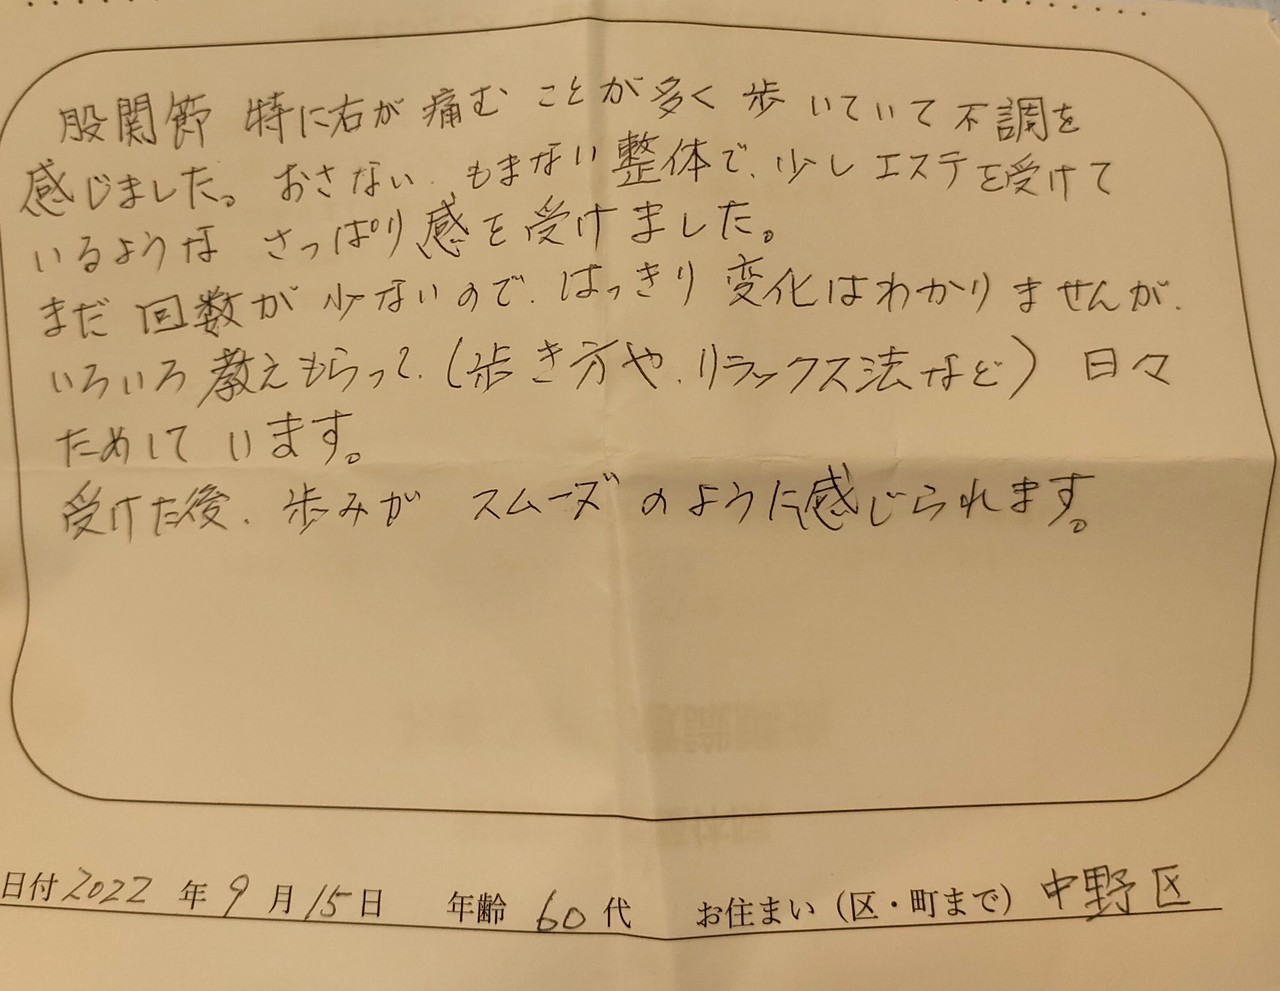 股関節 特に右が 痛む ことが多く 歩いていて不調を
感じました。おさない、もまない整体で、少しエステを受けて
いるような さっぱり感を受けました。
まだ 回数が 少ないので、はっきり 変化はわかりませんが、
いろいろ教えもらって、(歩き方や、リラックス法など) 日々
ためしています。
受けた後、歩みが スムーズのように感じられます。
日付 2022 年 9 月 15 日 年齢 60 代 お住まい (区・町まで) 中野区